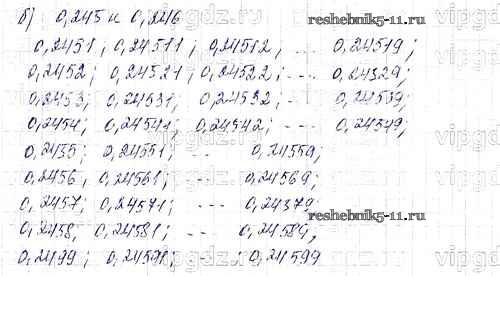 б) 0,245 и 0,246
0,2451; 0,24511; 0,24512; ... 0,24519;
0,2452; 0,24521; 0,24522; ... 0,24529;
0,2453; 0,24531; 0,24532; ... 0,24539;
0,2454; 0,24541; 0,24542; ... 0,24549;
0,2455; 0,24551; ... 0,24559;
0,2456, 0,24561; ... 0,24569;
0,2457; 0,24571; ... 0,24579;
0,2458, 0,24581; ... 0,24589;
0,2499; 0,24591; ... ; 0,24599
reshebnik5-11.ru
reshebnik5-11.ru
vipgdz.ru